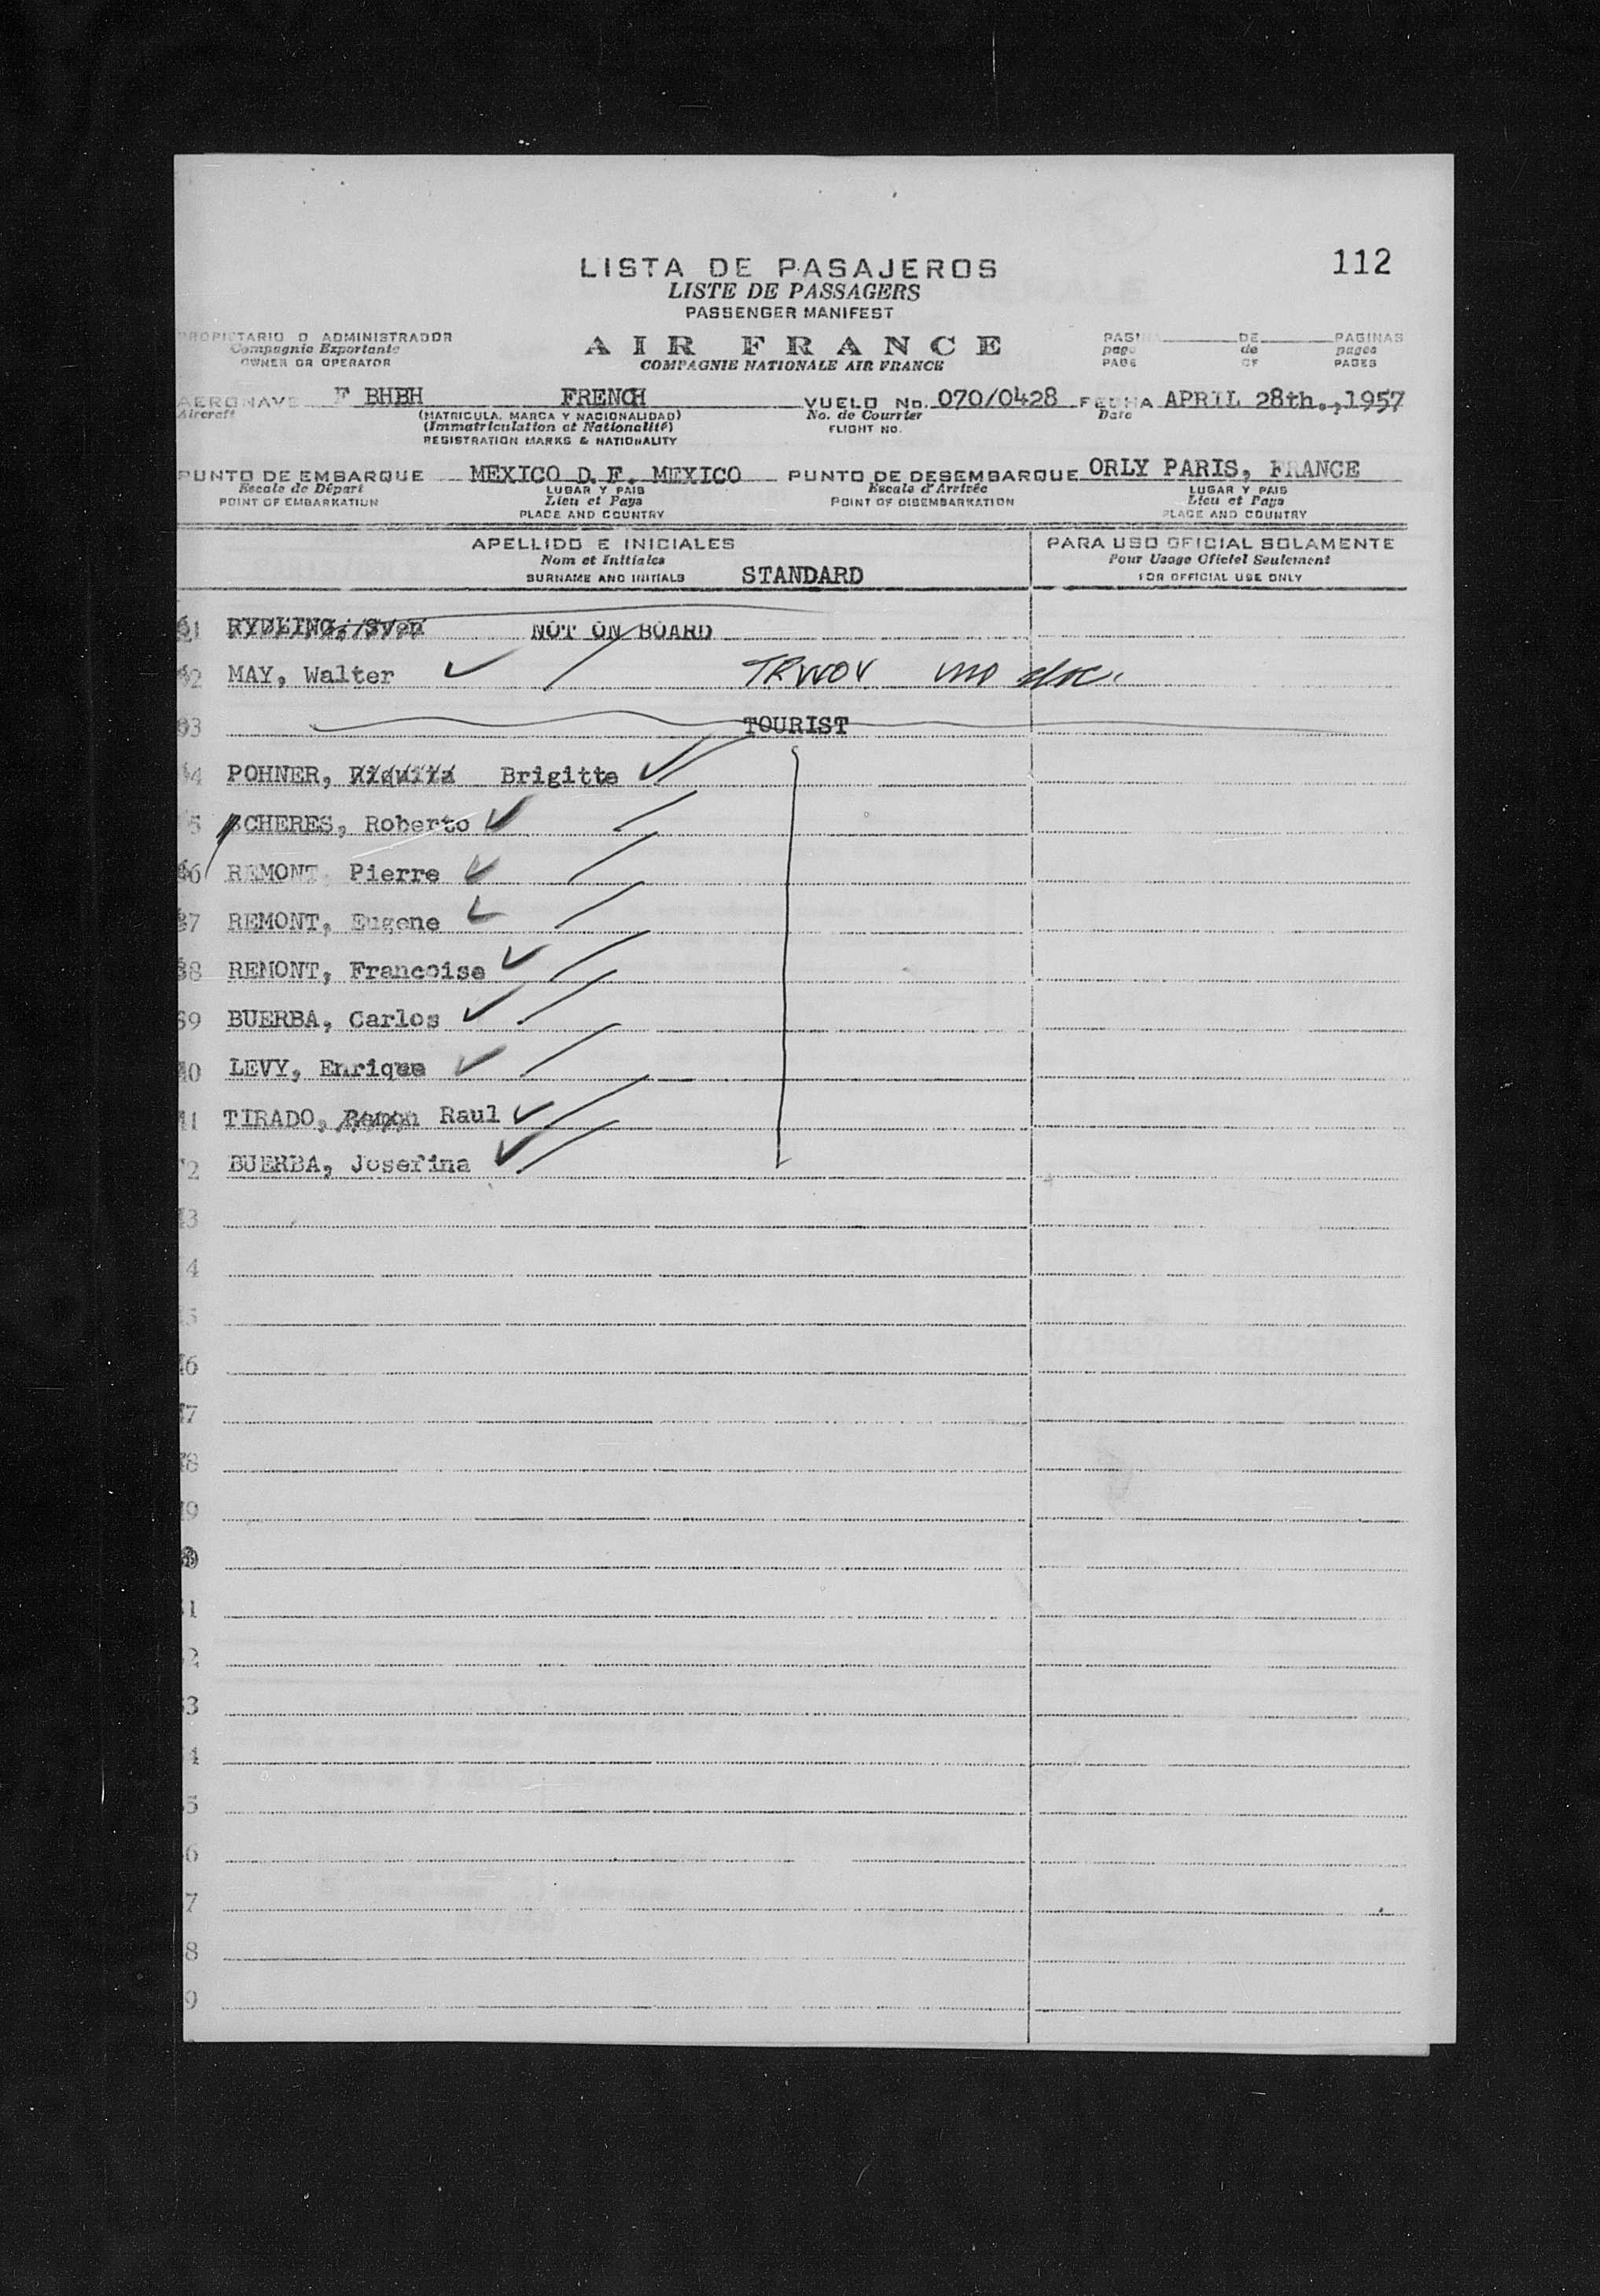 112
LISTA DE PASAJEROS
LISTE DE PASSAGERS
PASSENGER MANIFEST
PROPIETARIO O ADMINISTRADOR
Compagnie Exportante
OWNER OR OPERATOR
AIR FRANCE
COMPAGNIE NATIONALE AIR FRANCE
PAGINA DE PAGINAS
page de pages
PAGE OF PAGES
AERONAVE F BHBH FRENCH VUELO No. 070/0428 FECHA APRIL 28th., 1957
Aircraft (MATRICULA, MARCA Y NACIONALIDAD) No. de Courrier Date
(Immatriculation et Nationalité) FLIGHT NO.
REGISTRATION MARKS & NATIONALITY
PUNTO DE EMBARQUE MEXICO D.F. MEXICO PUNTO DE DESEMBARQUE ORLY PARIS, FRANCE
Escale de Départ LUGAR Y PAIS Escale d'Arrivée LUGAR Y PAIS
POINT OF EMBARKATION Lieu et Pays POINT OF DISEMBARKATION Lieu et Pays
PLACE AND COUNTRY PLACE AND COUNTRY
APELLIDO E INICIALES PARA USO OFICIAL SOLAMENTE
Nom et Initiales Pour Usage Oficiel Seulement
SURNAME AND INITIALS STANDARD FOR OFFICIAL USE ONLY
1 RYDLING, Sven NOT ON BOARD
2 MAY, Walter TRWOV
3 TOURIST
4 POHNER, Brigitte
5 SCHERES, Roberto
6 REMONT, Pierre
7 REMONT, Eugene
8 REMONT, Francoise
9 BUERBA, Carlos
0 LEVY, Enrique
1 TIRADO, Ramon Raul
2 BUERBA, Josefina
3
4
5
6
7
8
9
0
1
2
3
4
5
6
7
8
9